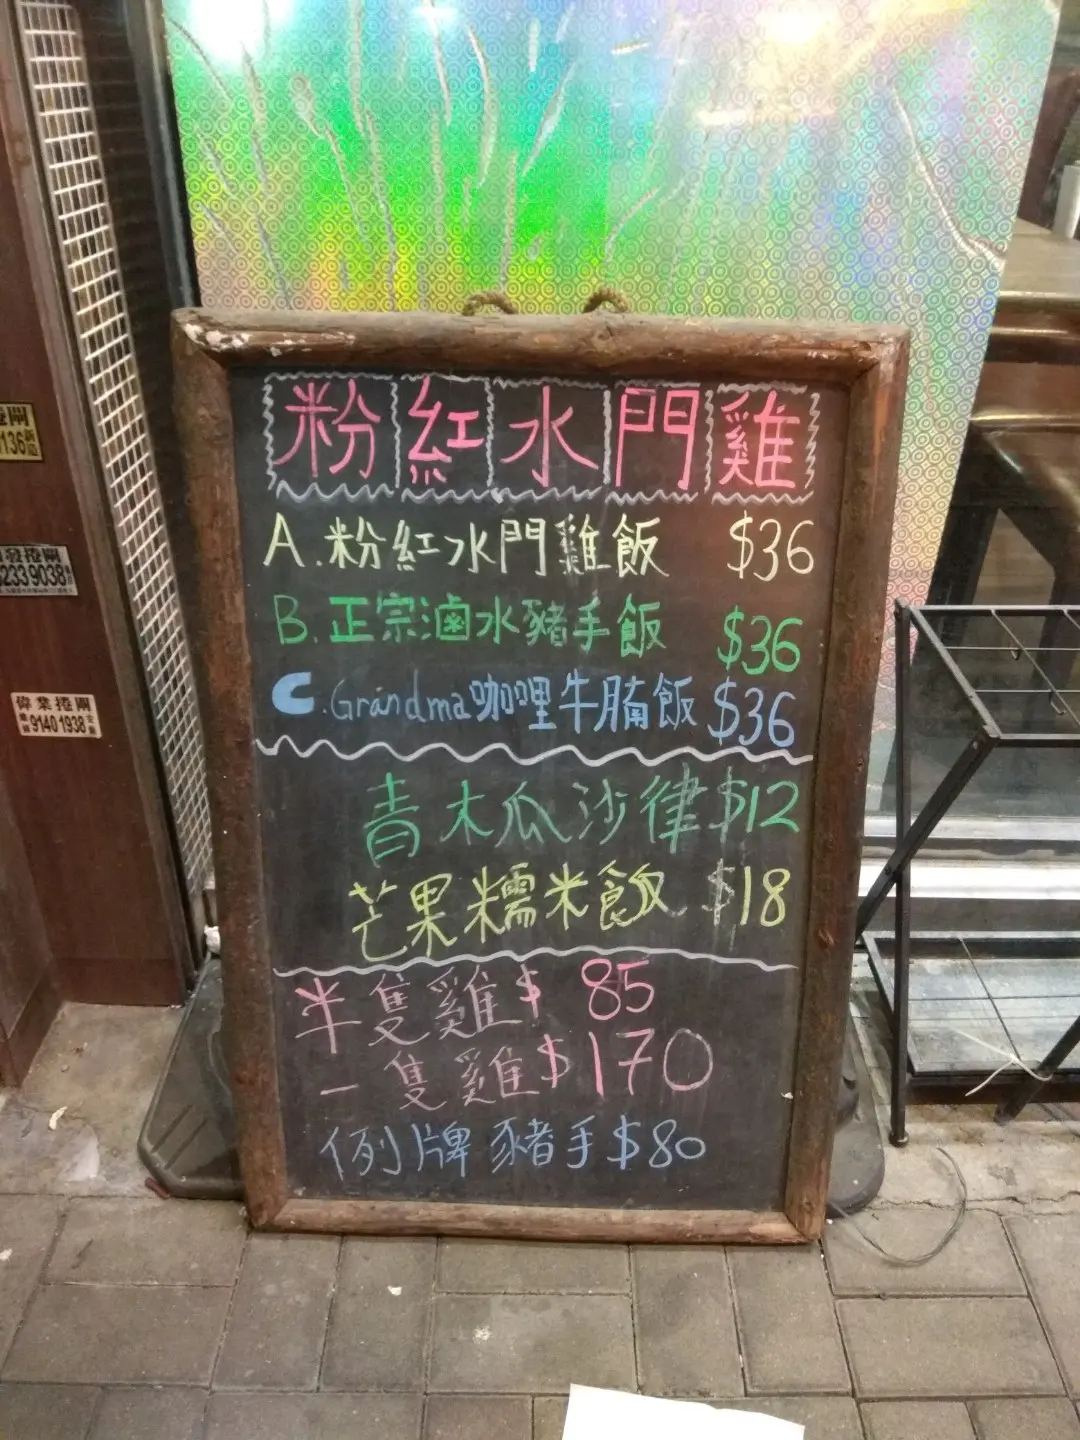 粉紅水門雞
A.粉紅水門雞飯 $36
B.正宗滷水豬手飯 $36
C.Grandma咖哩牛腩飯 $36
青木瓜沙律 $12
芒果糯米飯 $18
半隻雞 $ 85
一隻雞 $170
例牌豬手 $80
捲閘
136
發捲閘
2339038
偉業捲閘
91401938